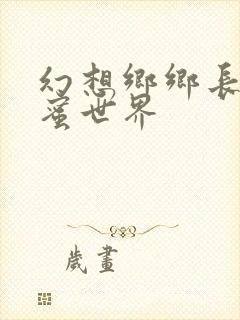 幻想鄉鄉長
蜜世界
歲畫